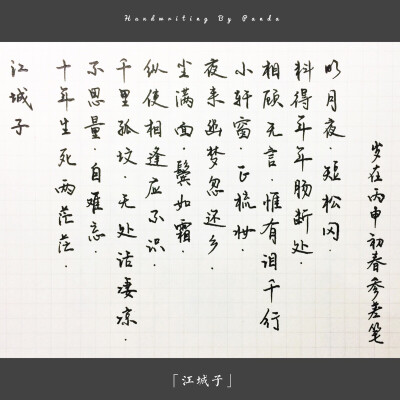 Handwriting By Panda
江城子
十年生死两茫茫.
不思量.自难忘.
千里孤坟.无处话凄凉.
纵使相逢应不识.
尘满面.鬓如霜.
夜来幽梦忽还乡.
小轩窗.正梳妆.
相顾无言.惟有泪千行
料得年年肠断处.
明月夜.短松冈.
岁在丙申初春参差笔
「江城子」